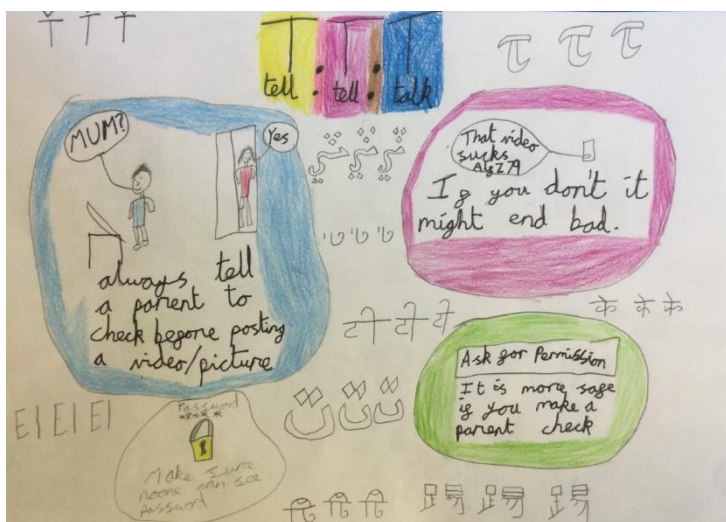 T : T : T
tell tell talk
MUM?
Yes
always tell
a parent to
check before posting
a video/picture
That video
sucks
If you don't it
might end bad.
टी टी टी
के के के
Ask for Permission
It is more safe
if you make a
parent check
Password
****
Make sure
noone can see
password
踢 踢 踢